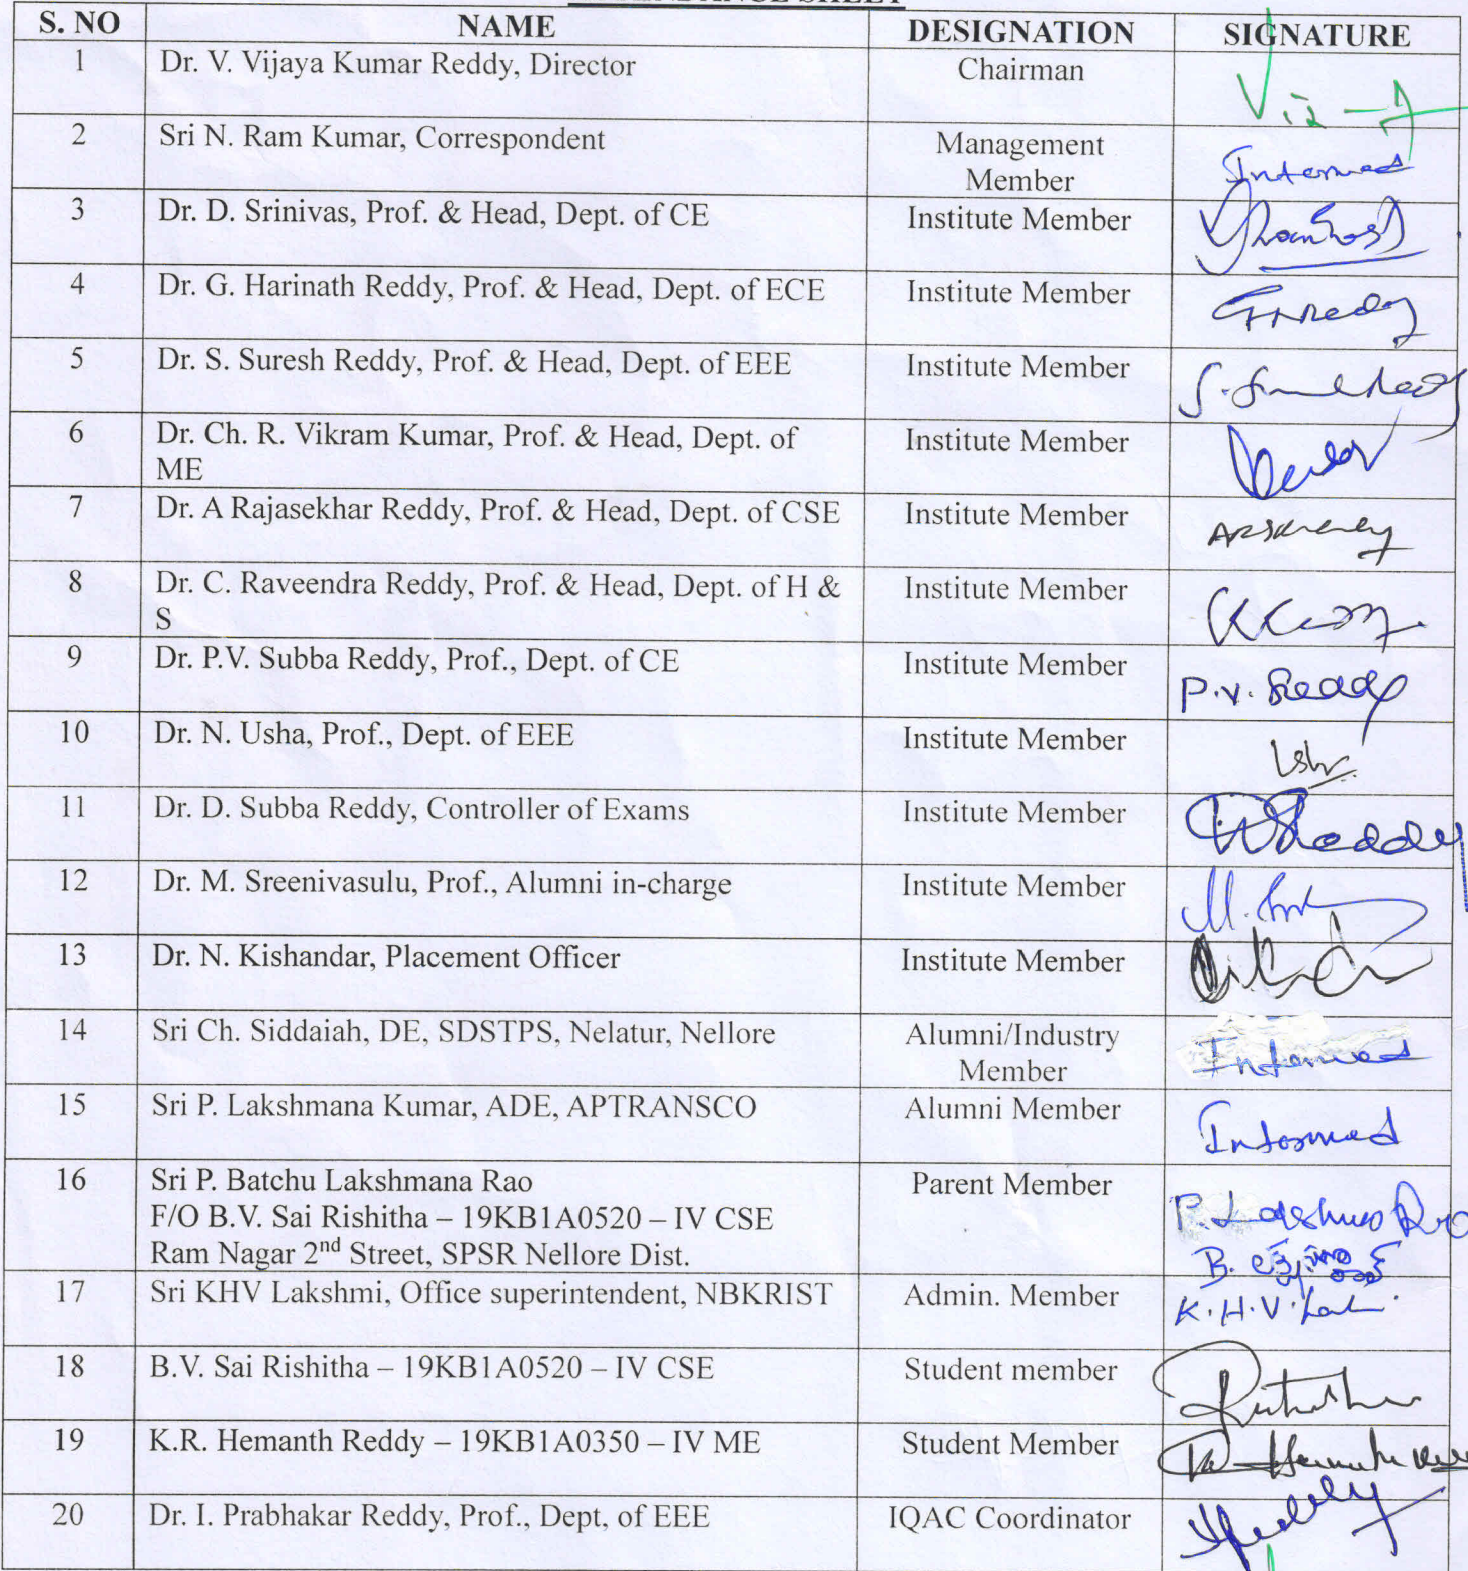 S. NO NAME DESIGNATION SIGNATURE
1 Dr. V. Vijaya Kumar Reddy, Director Chairman
2 Sri N. Ram Kumar, Correspondent Management
Member Informed
3 Dr. D. Srinivas, Prof. & Head, Dept. of CE Institute Member
4 Dr. G. Harinath Reddy, Prof. & Head, Dept. of ECE Institute Member
5 Dr. S. Suresh Reddy, Prof. & Head, Dept. of EEE Institute Member
6 Dr. Ch. R. Vikram Kumar, Prof. & Head, Dept. of Institute Member
ME
7 Dr. A Rajasekhar Reddy, Prof. & Head, Dept. of CSE Institute Member
8 Dr. C. Raveendra Reddy, Prof. & Head, Dept. of H & Institute Member
S
9 Dr. P.V. Subba Reddy, Prof., Dept. of CE Institute Member P.V. Reddy
10 Dr. N. Usha, Prof., Dept. of EEE Institute Member
11 Dr. D. Subba Reddy, Controller of Exams Institute Member
12 Dr. M. Sreenivasulu, Prof., Alumni in-charge Institute Member
13 Dr. N. Kishandar, Placement Officer Institute Member
14 Sri Ch. Siddaiah, DE, SDSTPS, Nelatur, Nellore Alumni/Industry
Member Informed
15 Sri P. Lakshmana Kumar, ADE, APTRANSCO Alumni Member Informed
16 Sri P. Batchu Lakshmana Rao Parent Member
F/O B.V. Sai Rishitha – 19KB1A0520 – IV CSE
Ram Nagar 2nd Street, SPSR Nellore Dist. B.
17 Sri KHV Lakshmi, Office superintendent, NBKRIST Admin. Member K.H.V.
18 B.V. Sai Rishitha – 19KB1A0520 – IV CSE Student member
19 K.R. Hemanth Reddy – 19KB1A0350 – IV ME Student Member
20 Dr. I. Prabhakar Reddy, Prof., Dept, of EEE IQAC Coordinator